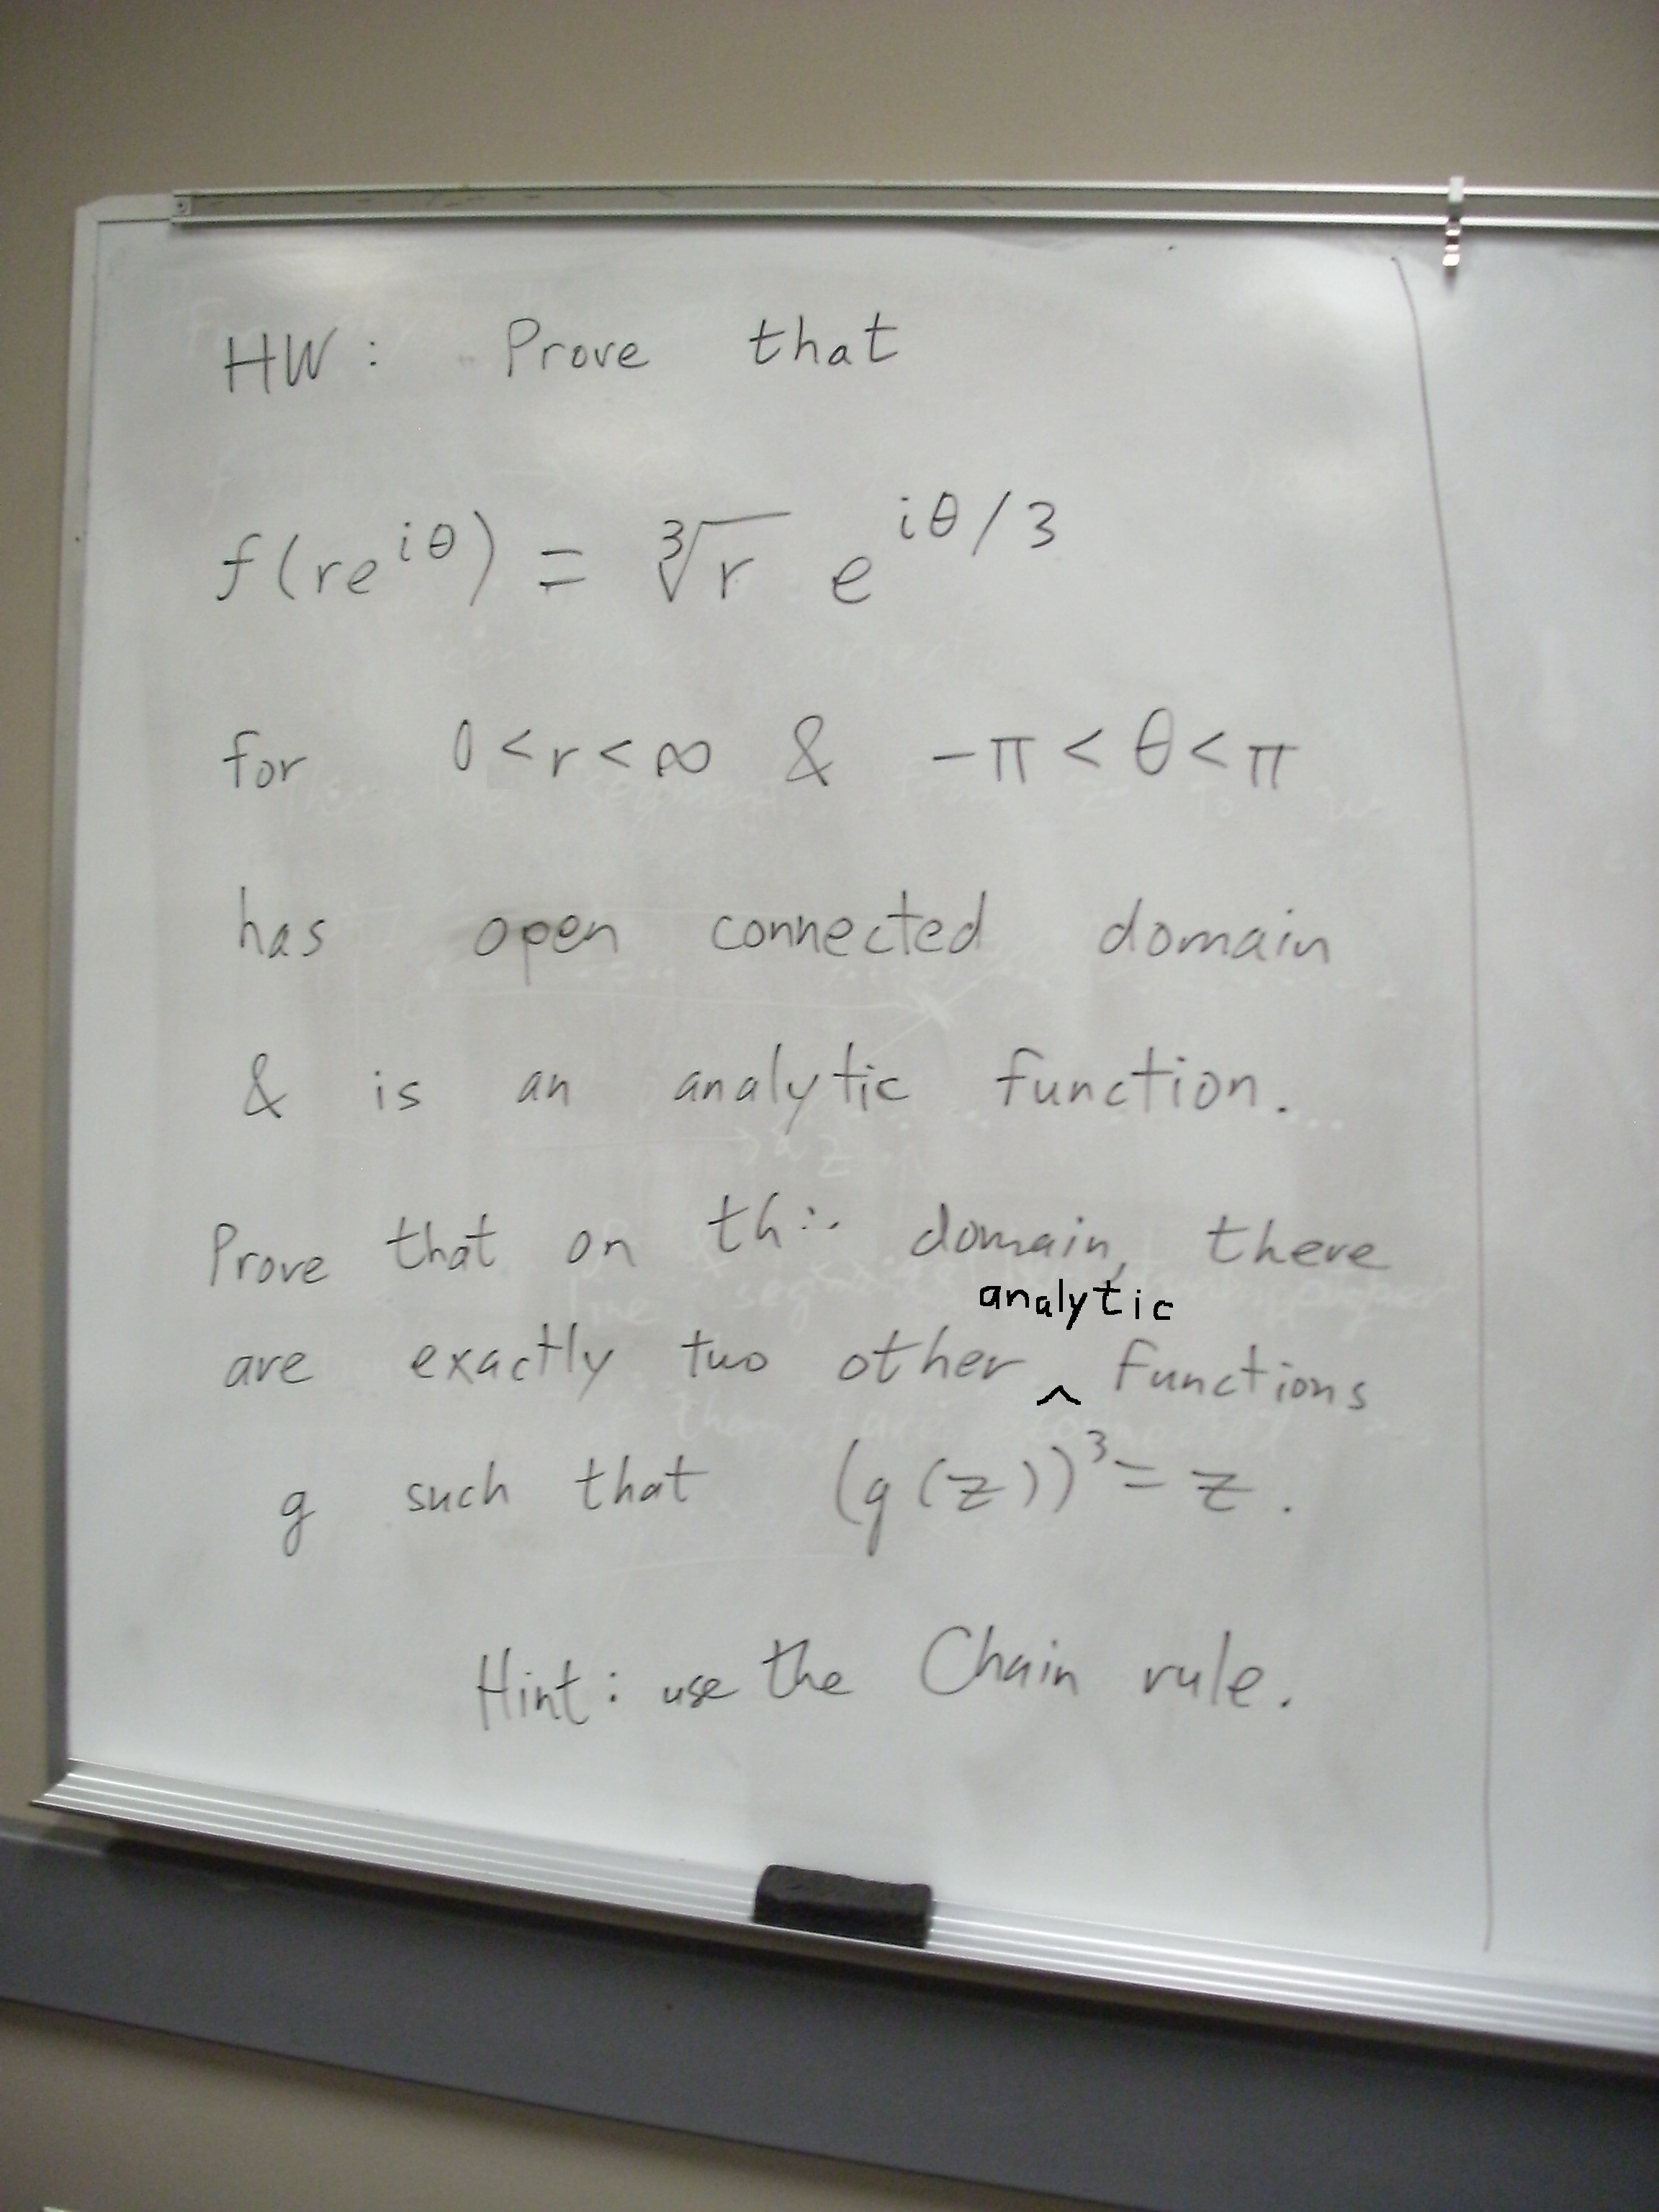 HW: Prove that
f(re^{iθ}) = ∛r e^{iθ/3}
for 0<r<∞ & -π<θ<π
has open connected domain
& is an analytic function.
Prove that on domain, there
analytic
are exactly two other ^ functions
g such that (g(z))³=z.
Hint: use the Chain rule.